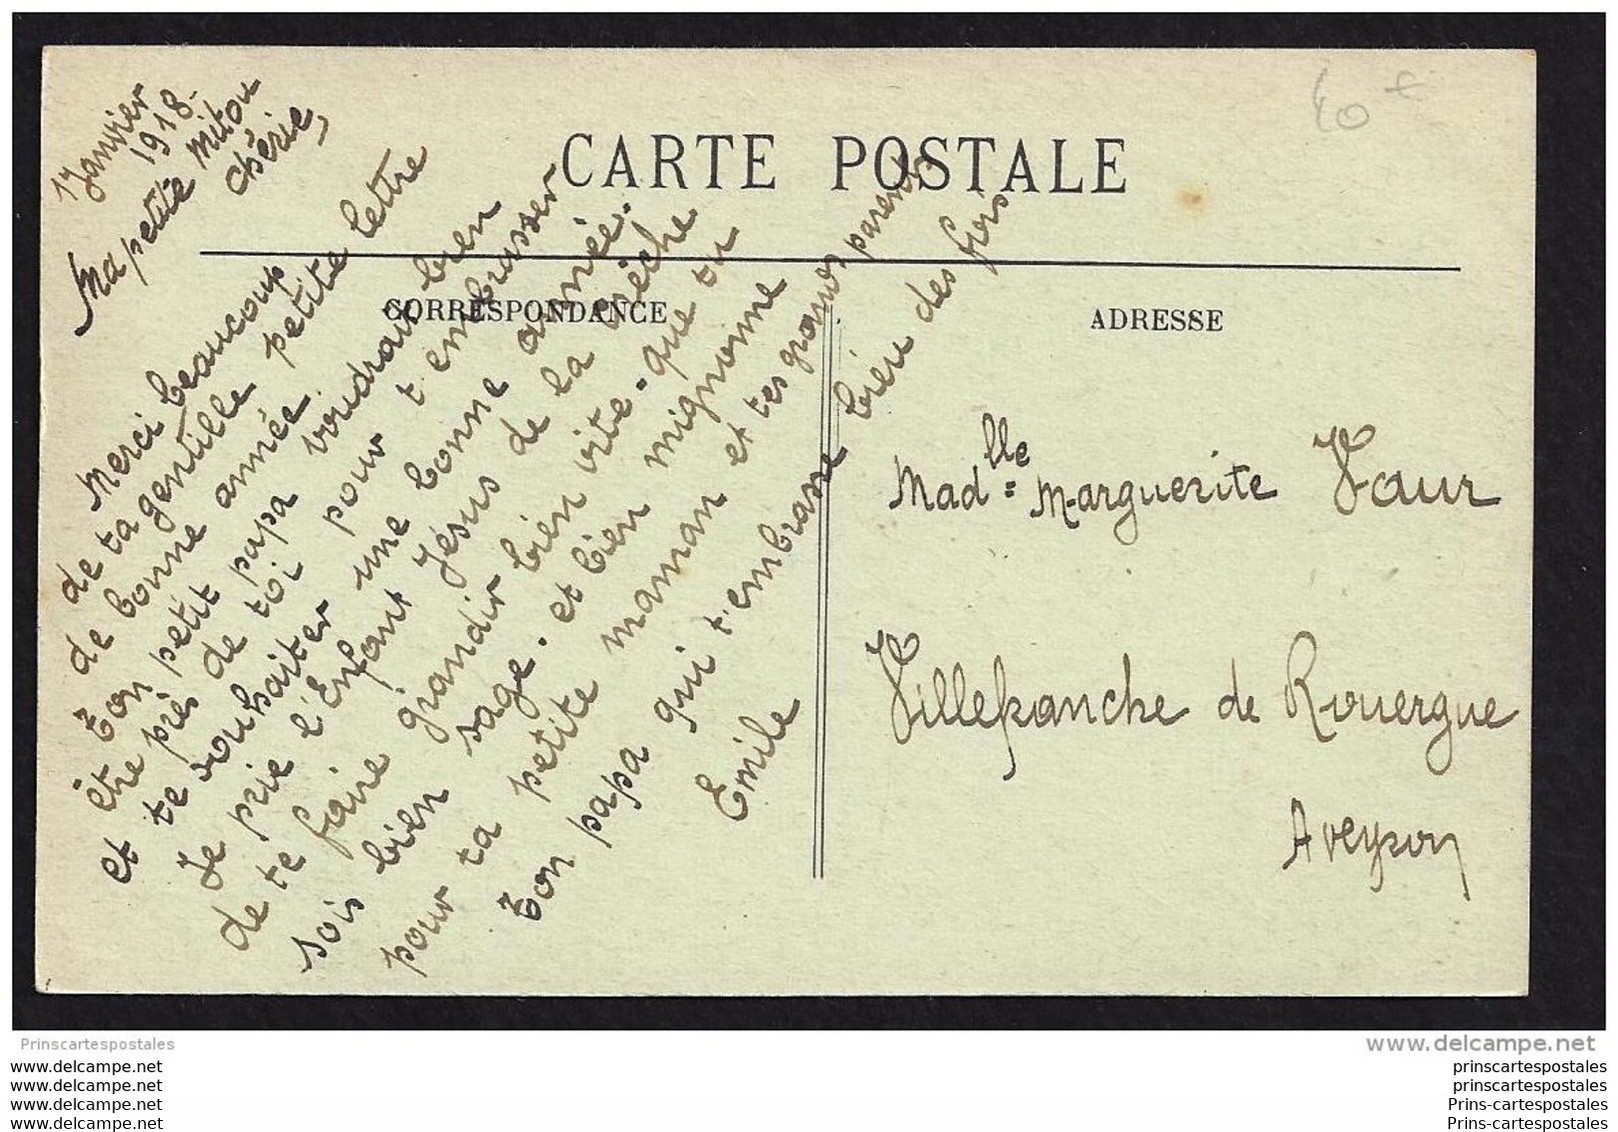 40 €
CARTE POSTALE
17 Janvier
1918-
Ma petite Mitou
chérie,
CORRESPONDANCE
Merci beaucoup
de ta gentille petite lettre
de bonne année.
Ton petit papa voudrait bien
être près de toi pour t'embrasser
et te souhaiter une bonne année.
Je prie l'Enfant Jésus de la crèche
de te faire grandir bien vite - que tu
sois bien sage. et bien mignonne
pour ta petite maman et tes grands parents
Ton papa qui t'embrasse bien des fois
Emile
ADRESSE
Madlle= Marguerite Vaur
Villefranche de Rouergue
Aveyron
Prinscartespostales
www.delcampe.net
www.delcampe.net
www.delcampe.net
www.delcampe.net
www.delcampe.net
prinscartespostales
prinscartespostales
Prins-cartespostales
Prins-cartespostales